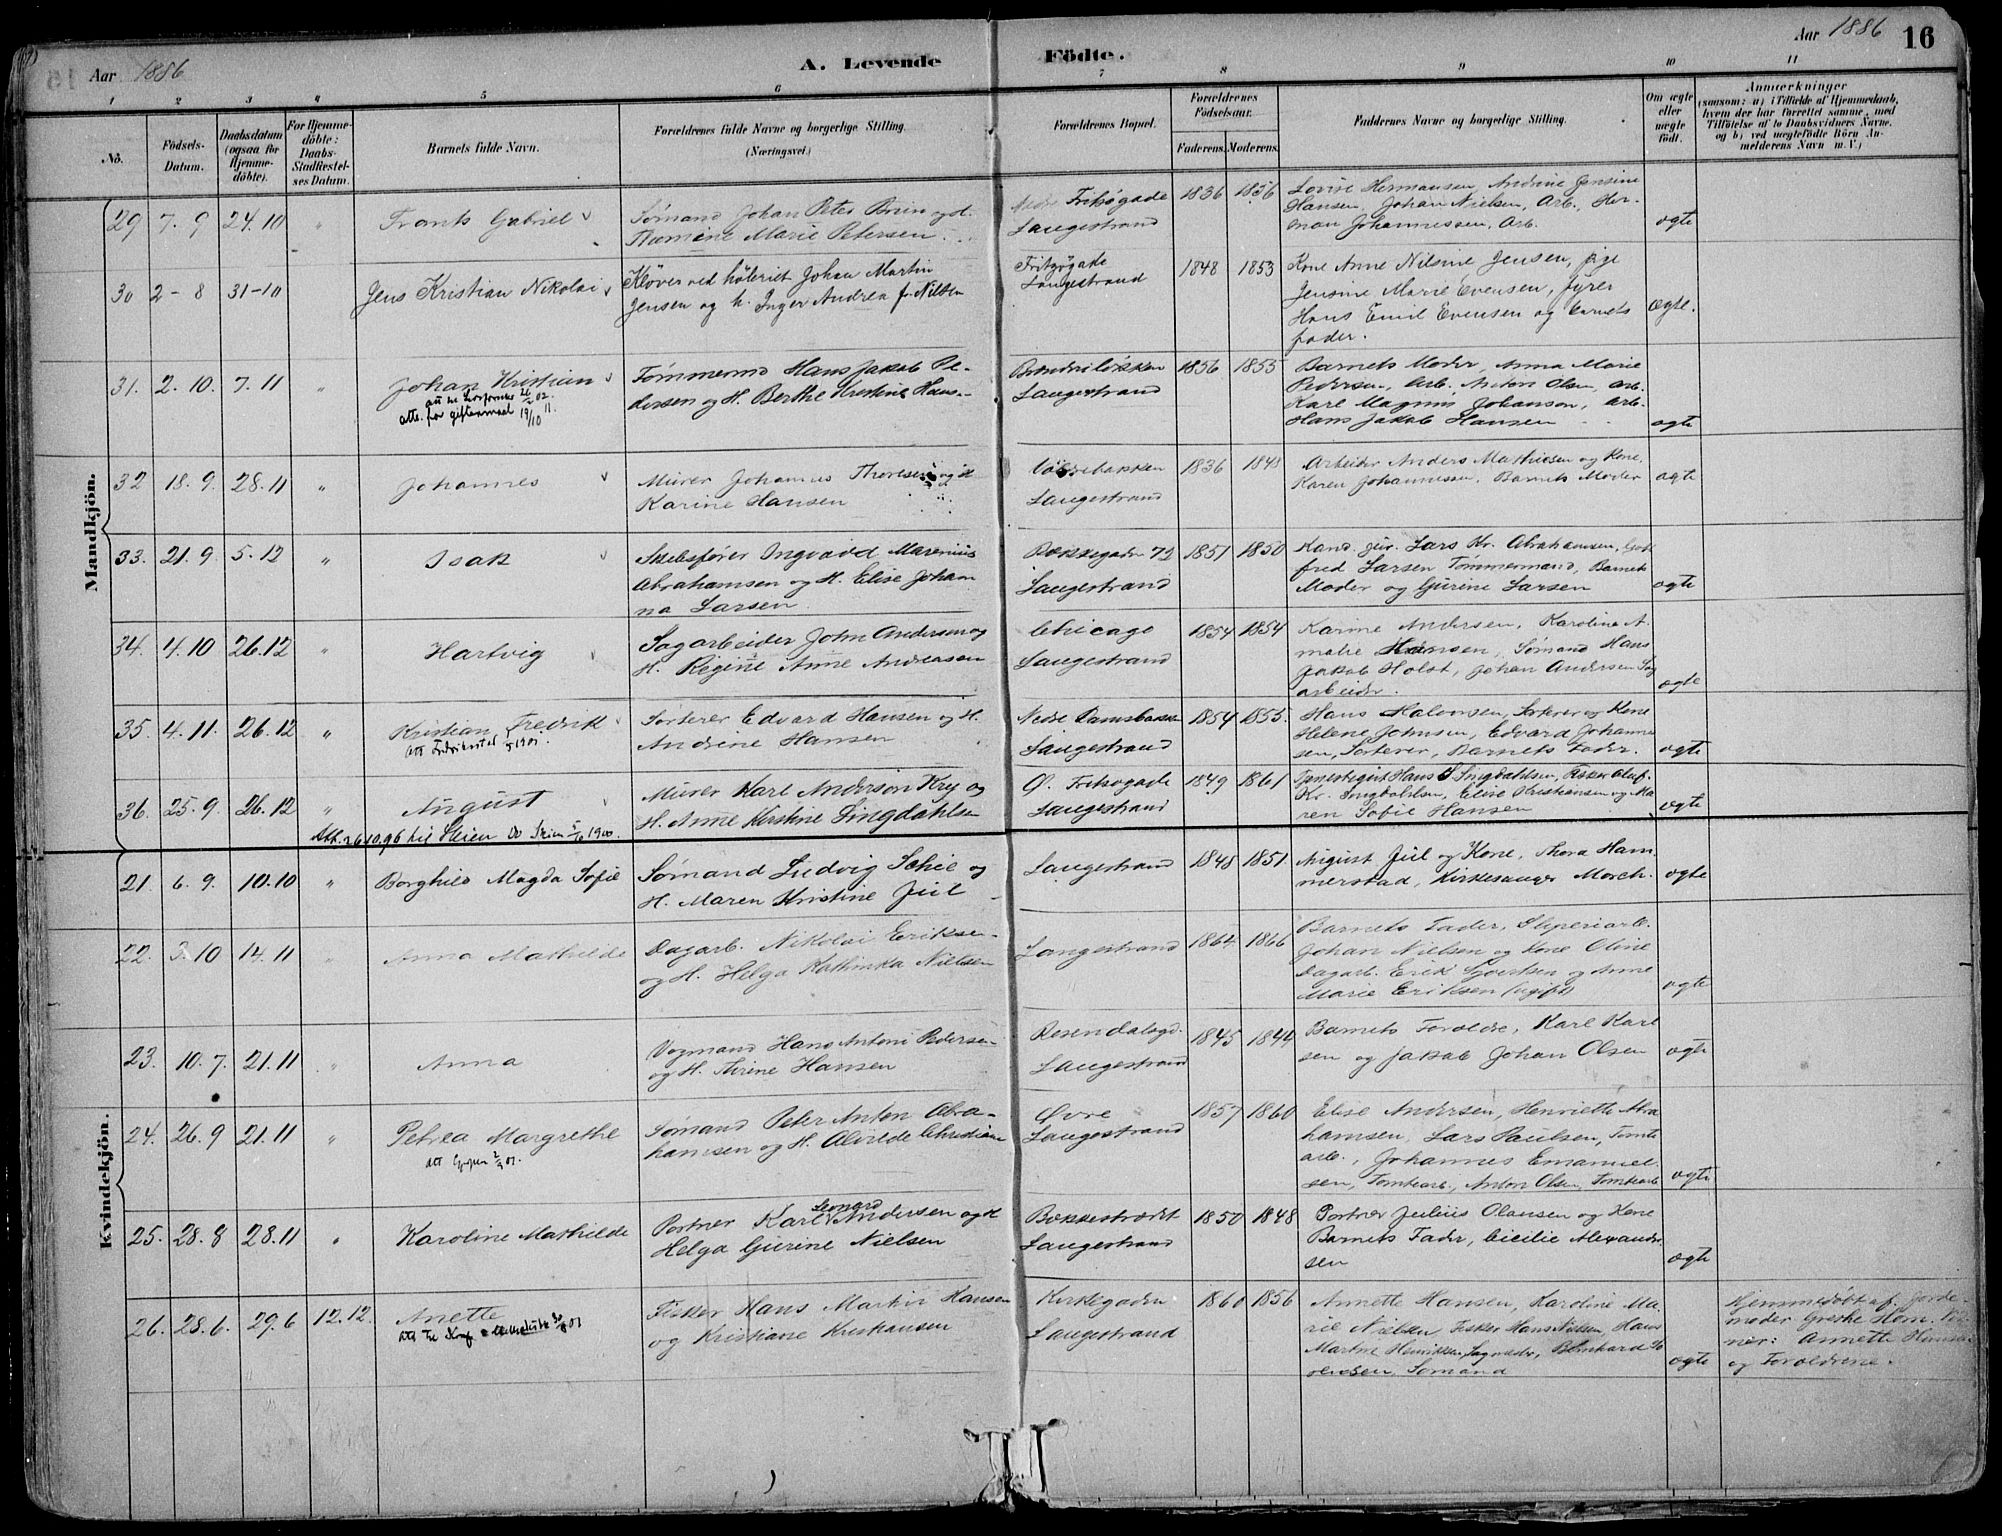 Aar 1886
A. Levende Födte.
Aar 1886 16
1 2 3 4 5 6 7 8 9 10 11
No.
Födsels-Datum.
Daabsdatum (ogsaa for Hjemme-döbte).
For Hjemme-döbte: Daabs-Stadfæstel-ses Datum.
Barnets fulde Navn.
Forældrenes fulde Navne og borgerlige Stilling.
(Næringsvei.)
Forældrenes Bopæl.
Forældrenes Födselsaar.
Faderens. Moderens.
Faddernes Navne og borgerlige Stilling.
Om ægte eller uægte födt.
Anmærkninger
(saasom: a) i Tilfælde af Hjemmedaab, hvem der har forrettet samme, med Tilföielse af to Daabsvidners Navne, og b) ved uægtefödte Börn An-melderens Navn m. V.)
Mandkjön.
29 7. 9 24. 10 " Frants Gabriel
Sømand Johan Peter Bruin og H.
Thomine Marie Petersen
Nedre Fritsøgade
Langestrand
1836 1856
Lovise Hermansen, Andrine Jensine
Hansen, Johan Nielsen, Arb. Her-
man Johannessen, Arb.
ægte
30 2 - 8 31-10 Jens Kristian Nikolai
Kløver ved høleriet Johan Martin
Jensen og h. Inger Andrea f. Nilsen
Fritzøgade
Langestrand
1848 1853
Kone Anne Nilsine Jensen, pige
Jensine Marie Evensen, fyrer
Hans Emil Evensen og barnets
fader.
Ægte.
31. 2. 10. 7. 11 " Johan Kristian
att. for giftermaal 19/10 11.
Tømmermd Hans Jakob Pe-
dersen og H. Berthe Kristine Hans.-
Langestrand
1856 1855
Barnets Moder, Anna Marie
Pedersen, Arb. Anton Olsen, Arb.
Karl Magnus Johanson, Arb.
Hans Jakob Hansen
ægte
32 18. 9. 28. 11 " Johannes
Murer Johannes Thoresen og H
Karine Hansen
Langestrand
1836 1848
Arbeider Anders Mathiesen og Kone,
Karen Johannessen, Barnets Moder
ægte
33. 21. 9. 5. 12 " Isak
Skibsfører Ingvald Marenius
Abrahamsen og H. Elise Johan
na Larsen
Bøkkegaden 72
Langestrand
1851 1850
Kand. jur. Lars Kr. Abrahamsen, Got
fred Larsen Tømmermand, Barnets
Moder og Gurine Larsen
ægte
34. 4. 10 26. 12 " Hartvig
Sagarbeider John Andersen og
H. Regine Anne Andreasen
Chicago
Langestrand
1854 1854
Karine Andersen, Karoline A.
malie Hansen, Sømand Hans
Jakob Holst, Johan Andersen Sag
arbeider.
ægte
35. 4. 11. 26. 12 " Kristian Fredrik
Att Fredrikstad 1901.
Sorterer Edvard Hansen og H.
Andrine Hansen
Nedre Damsbakken
Langestrand
1854 1855.
Hans Halvorsen, Sorterer og Kone
Helene Johnsen, Edvard Johanne
sen, Sorterer, Barnets Fader.
ægte
36. 25. 9. 26. 12 " August
Att. 26.10.96 til Skien Do Skien 1900.
Murer Karl Anderson Kry og
H. Anne Kirstine Lingdahlsen
Ø. Fritsøgade
Langestrand
1849 1861
Tjenestegut Hans S Lingdahlsen, Fisker Oluf.
Kr. Lingdahlsen, Elise Kristiansen og Ma
ren Sofie Hansen
ægte
Kvindekjön.
21. 6. 9. 10. 10 " Borghild Magda Sofie
Sømand Ludvig Schie og
H. Maren Kristine Juel
Langestrand
1848 1851.
August Juel og Kone, Thora Ham
merstad, Kirkesanger Morch.
ægte
22. 3. 10 14. 11 " Anna Mathilde
Dagarb. Nikolai Eriksen
og H. Helga Kathinka Nielsen
Langestrand
1864 1866
Barnets Fader, Sliperiarb.
Johan Nielsen og Kone Oline
Dagarb. Erik Sjvertsen og Anne
Marie Eriksen (ugift)
ægte
23. 10. 7. 21. 11 " Anna
Vogmand Hans Antoni Pedersen
og H. Thrine Hansen
Rosendalsgd.
Langestrand
1845 1844
Barnets Forældre, Karl Karl
sen og Jakob Johan Olsen
ægte
24. 26. 9 21. 11 " Petrea Margrethe
Sømand Peter Anton Abra-
hamsen og H. Alvilde Christian
Øvre
Langestrand
1857 1860
Elise Andersen, Henriette Abra
hamsen, Lars Paulsen, Tomte
arb., Johannes Emanuel-
sen, Tomtearb., Anton Olsen, Tomtearb
ægte
25. 28. 8 28. 11 " Karoline Mathilde
Portner Karl Leonard Andersen og H
Helga Gurine Nielsen
Bøkkestrædet
Langestrand
1850 1848
Portner Julius Olausen og Kone
Barnets Fader, Cicilie Alexander
sen
ægte
26. 28. 6. 29. 6 12. 12. Anette
Fisker Hans Martin Hansen
og Kristiane Kristiansen
Kirkegaden
Langestrand
1860 1856
Annette Hansen, Karoline Ma-
rie Nielsen, Fisker Hans Nielsen, Hans
Martin Henriksen, Sagmester, Bernhard
Sømand
ægte
Hjemmedøbt af Jorde-
moder Grethe Hem. Vid
ner: Annette Hansen
og Forældrene.